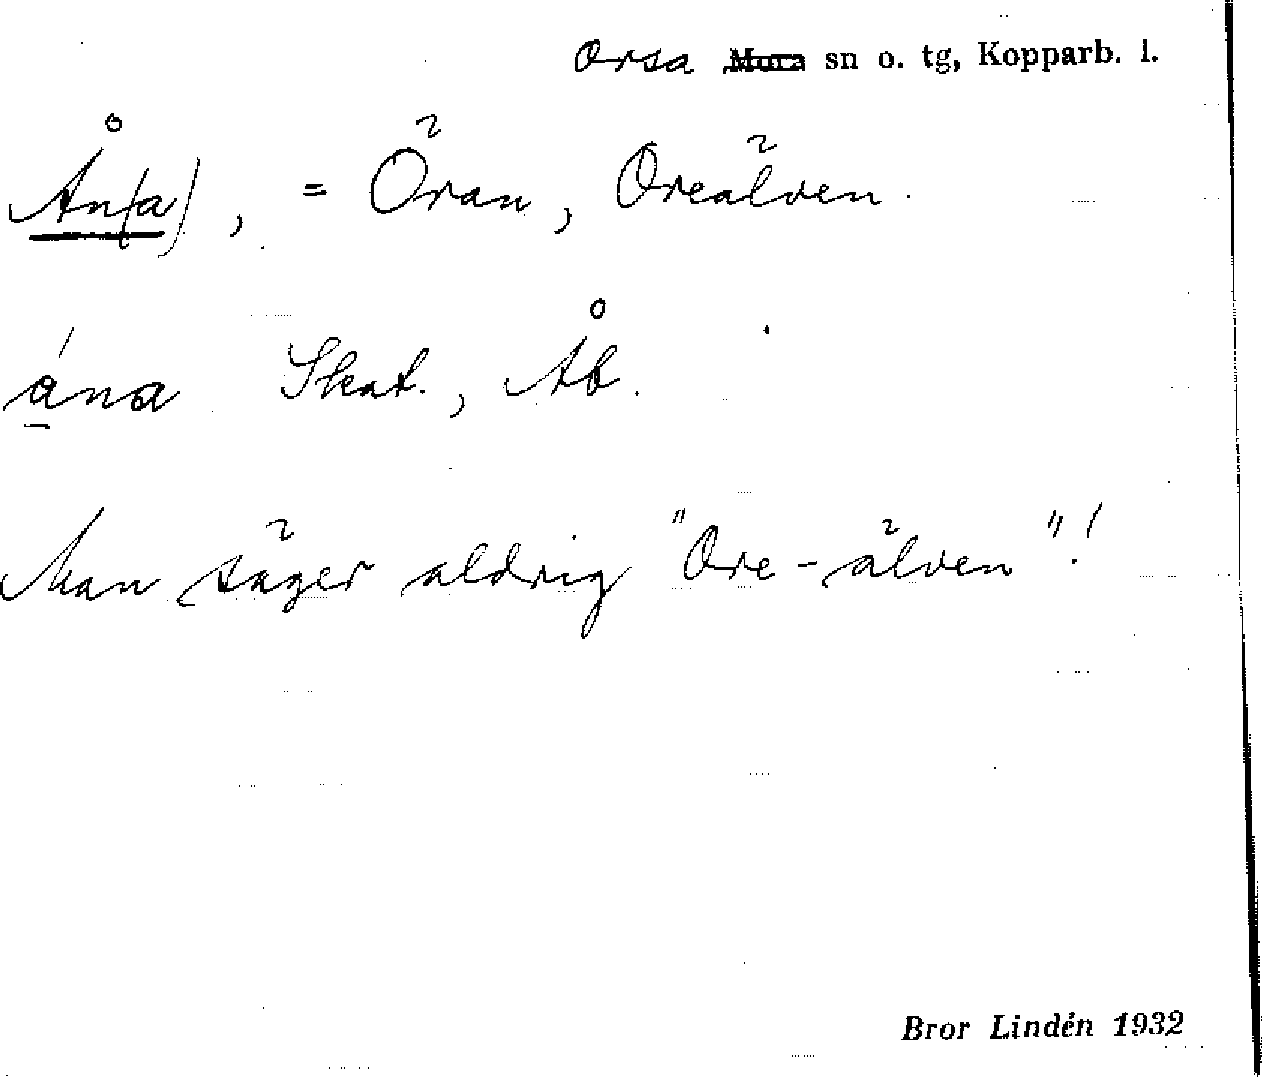 Orsa Mora sn o. tg, Kopparb. l.
Ån(a), = Öran, Oreälven.
ána Skat., Åb.
Man säger aldrig "Ore-älven"!
Bror Lindén 1932